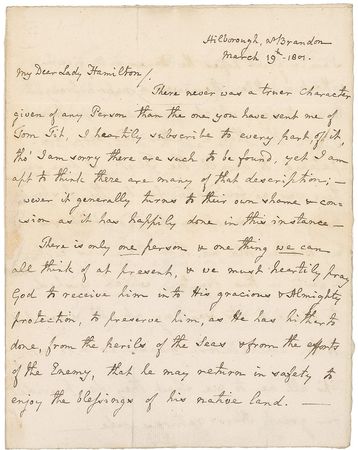 Hilborough, nr Brandon
March 19th - 1801.
My Dear Lady Hamilton/.
There never was a truer character
given of any Person than the one you have sent me of
Tom Tit, I heartily subscribe to every part of it,
tho' I am sorry there are such to be found, yet I am
apt to think there are many of that description; -
wever it generally turns to their own shame & con-
sion as it has happily done in this instance -
There is only one person & one thing we can
all think of at present, & we must heartily pray
God to receive him into His gracious & Almighty
protection, to preserve him, as He has hitherto
done, from the perils of the Seas & from the efforts
of the Enemy, that he may return in safety to
enjoy the blessings of his native land. -